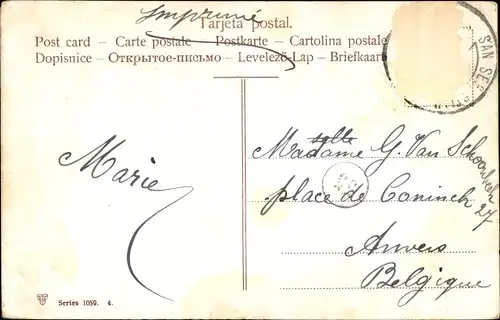 Imprimé
Tarjeta postal.
Post card – Carte postale – Postkarte – Cartolina postale
Dopisnice – Открытое-письмо – Levelező-Lap – Briefkaart
SAN SE
Marie
Madame G. Van Schoonbeek
place de Coninck 27
Anvers
Belgique
Series 1059. 4.